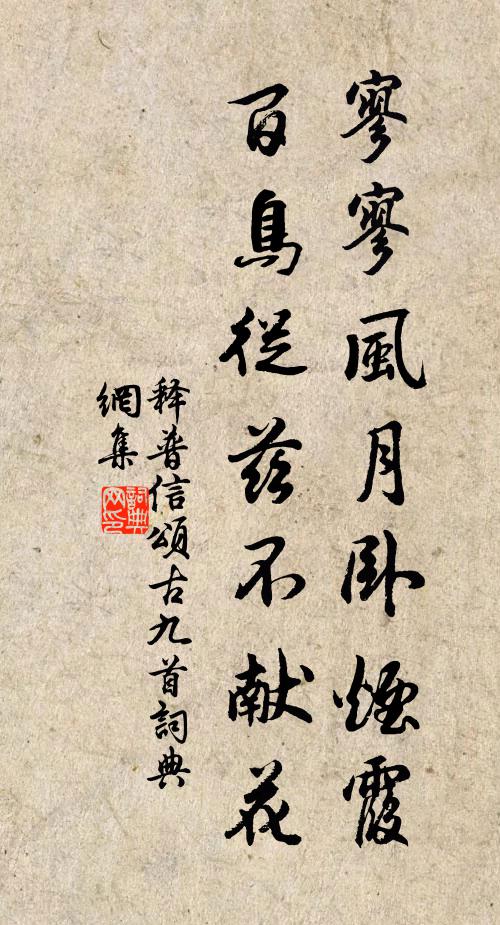 寥寥風月卧煙霞
百鳥從茲不献花
释普信頌古九首詞典
網集
詞典网印